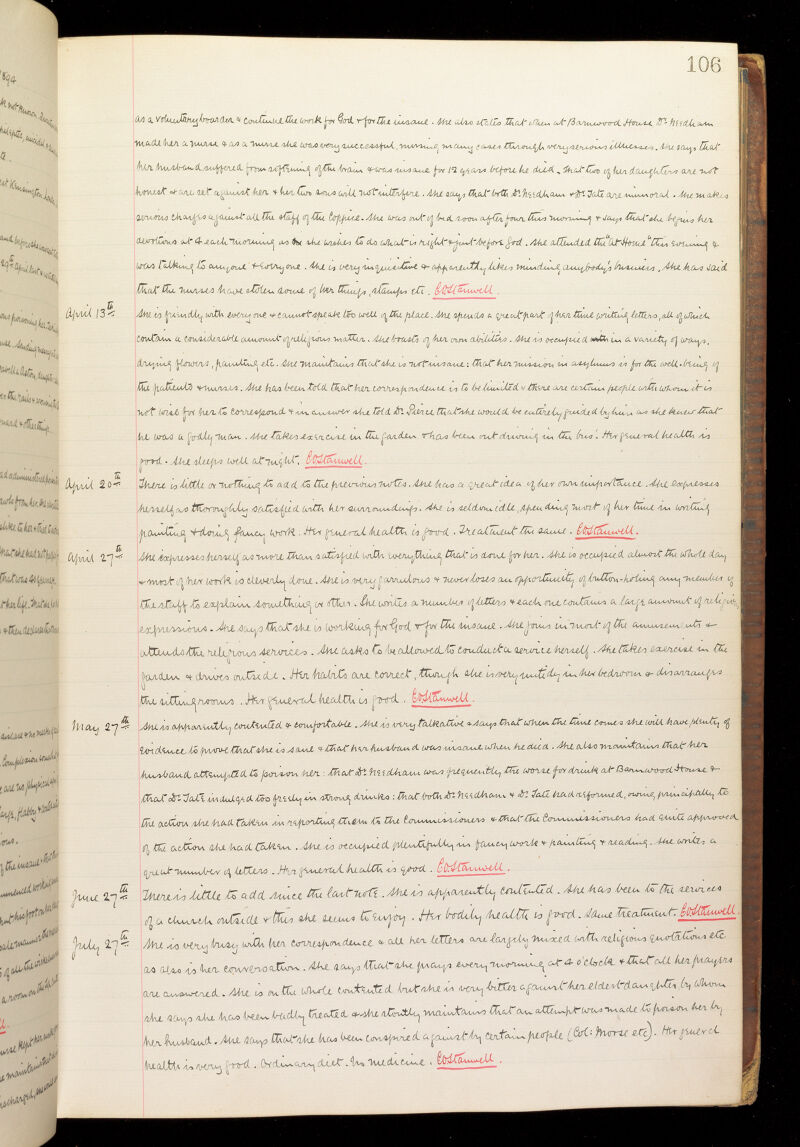 106
as a voluntary boarder & continue the work for God & for the insane. She also states that when at Barnwood House Dr. Needham
made her a nurse & as a nurse she was very successful, nursing many cases through very serious illnesses. She says that
her husband suffered from softening of the brain & was insane for 12 years before he died. That two of her daughters are not
honest & are set against her & her two sons will not interfere. She says that both Dr. Needham & Dr. Tate are immoral. She makes
serious charges against all the staff of the Coppice. She was out of bed soon after four this morning & says that she begins her
devotions at 4 each morning as she wishes to do what is right & just before God. She attended the "at Home" this evening &
was talking to anyone & everyone. She is very inquisitive & apparently likes minding anybody's business. She has said
that the nurses have stolen some of her things, stamps etc. E.O.Stanwell.
April 13th She is friendly with every one & cannot speak too well of the place. She spends a great part of her time writing letters, all of which
contain a considerable amount of religious matter. She boasts of her own abilities. She is occupied in a variety of ways,
drying flowers, painting etc. She maintains that she is not insane: that her mission in asylums is for the well-being of
the patients & nurses. She has been told that her correspondence is to be limited & there are certain people with whom it is
not wise for her to correspond & in answer she told Dr. Pierce that she would be entirely guided by him as she knew that
he was a godly man. She takes exercise in the garden & has been out driving in the bus. Her general health is
good. She sleeps well at night. E.O.Stanwell.
April 20th There is little or nothing to add to the previous notes. She has a great idea of her own importance. She expresses
herself as thoroughly satisfied with her surroundings. She is seldom idle, spending most of her time in writing
painting & doing fancy work. Her general health is good. Treatment the same. E.O.Stanwell.
April 27th She expresses herself as more than satisfied with everything that is done for her. She is occupied almost the whole day
& most of her work is cleverly done. She is very garrulous & never loses an opportunity of button-holing any member of
the staff to explain something or other. She writes a number of letters & each one contains a large amount of religious
expressions. She says that she is working for God & for the insane. She joins in most of the amusements &
attends the religious services. She asks to be allowed to conduct a service herself. She takes exercise in the
garden & drives outside. Her habits are correct, though she is very untidy in her bedroom & disarranges
the sitting rooms. Her general health is good. E.O.Stanwell.
May 27th She is apparently contented & comfortable. She is very talkative & says that when the time comes she will have plenty of
evidence to prove that she is sane & that her husband was insane when he died. She also maintains that her
husband attempted to poison her: that Dr. Needham was frequently the worse for drink at Barnwood House &
that Dr. Tate indulged too freely in strong drinks: that both Dr. Needham & Dr. Tate had reformed, owing principally to
the action she had taken in reporting them to the Commissioners & that the Commissioners had quite approved
of the action she had taken. She is occupied plentifully in fancy work & painting & reading. She writes a
great number of letters. Her general health is good. E.O.Stanwell.
June 27th There is little to add since the last note. She is apparently contented. She has been to the services
of a church outside & this she seems to enjoy. Her bodily health is good. Same treatment. E.O.Stanwell.
July 27th She is very busy with her correspondence & all her letters are largely mixed with religious quotations etc
as also is her conversation. She says that she prays every morning at 4 o'clock & that all her prayers
are answered. She is on the whole contented but she is very bitter against her eldest daughter by whom
she says she has been badly treated & she stoutly maintains that an attempt was made to poison her by
her husband. She says that she has been conspired against by certain people (Col: Morse etc). Her general
health is very good. Ordinary diet. No medicine. E.O.Stanwell.